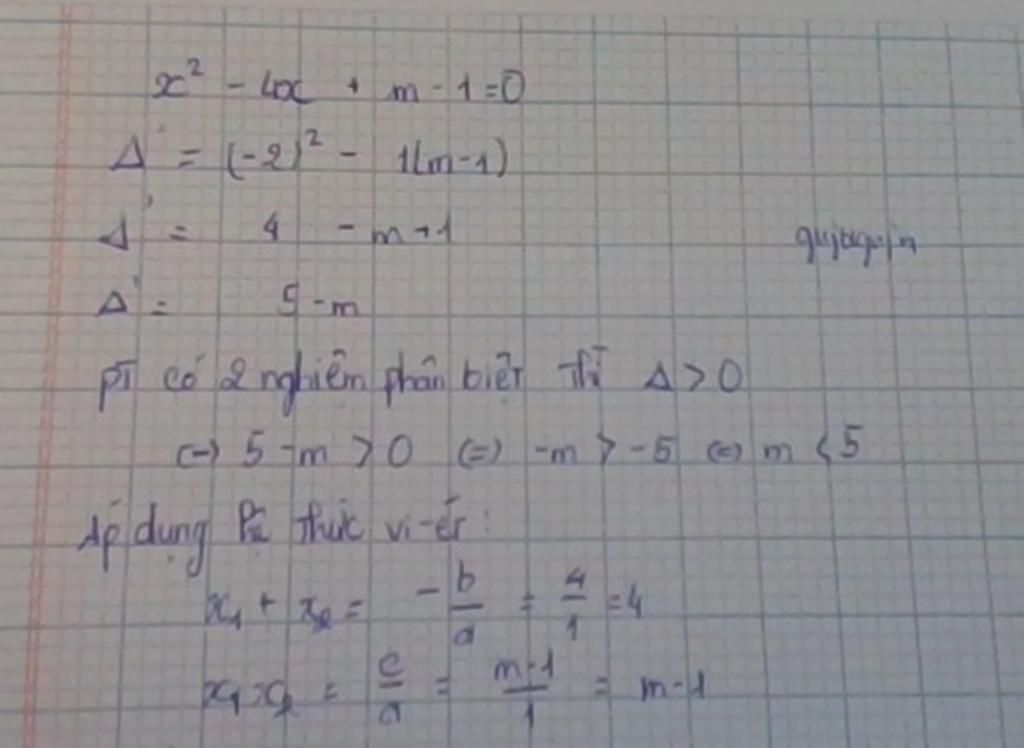 x² - 4x + m - 1 = 0
Δ' = (-2)² - 1(m-1)
Δ' = 4 - m+1
Δ' = 5 - m
pT có 2 nghiệm phân biệt Thì Δ > 0
(=) 5 - m > 0 (=) -m > -5 (=) m < 5
Áp dụng thức vi-ét:
x₁ + x₂ = -b/a = 4/1 = 4
x₁x₂ = c/a = m-1/1 = m-1